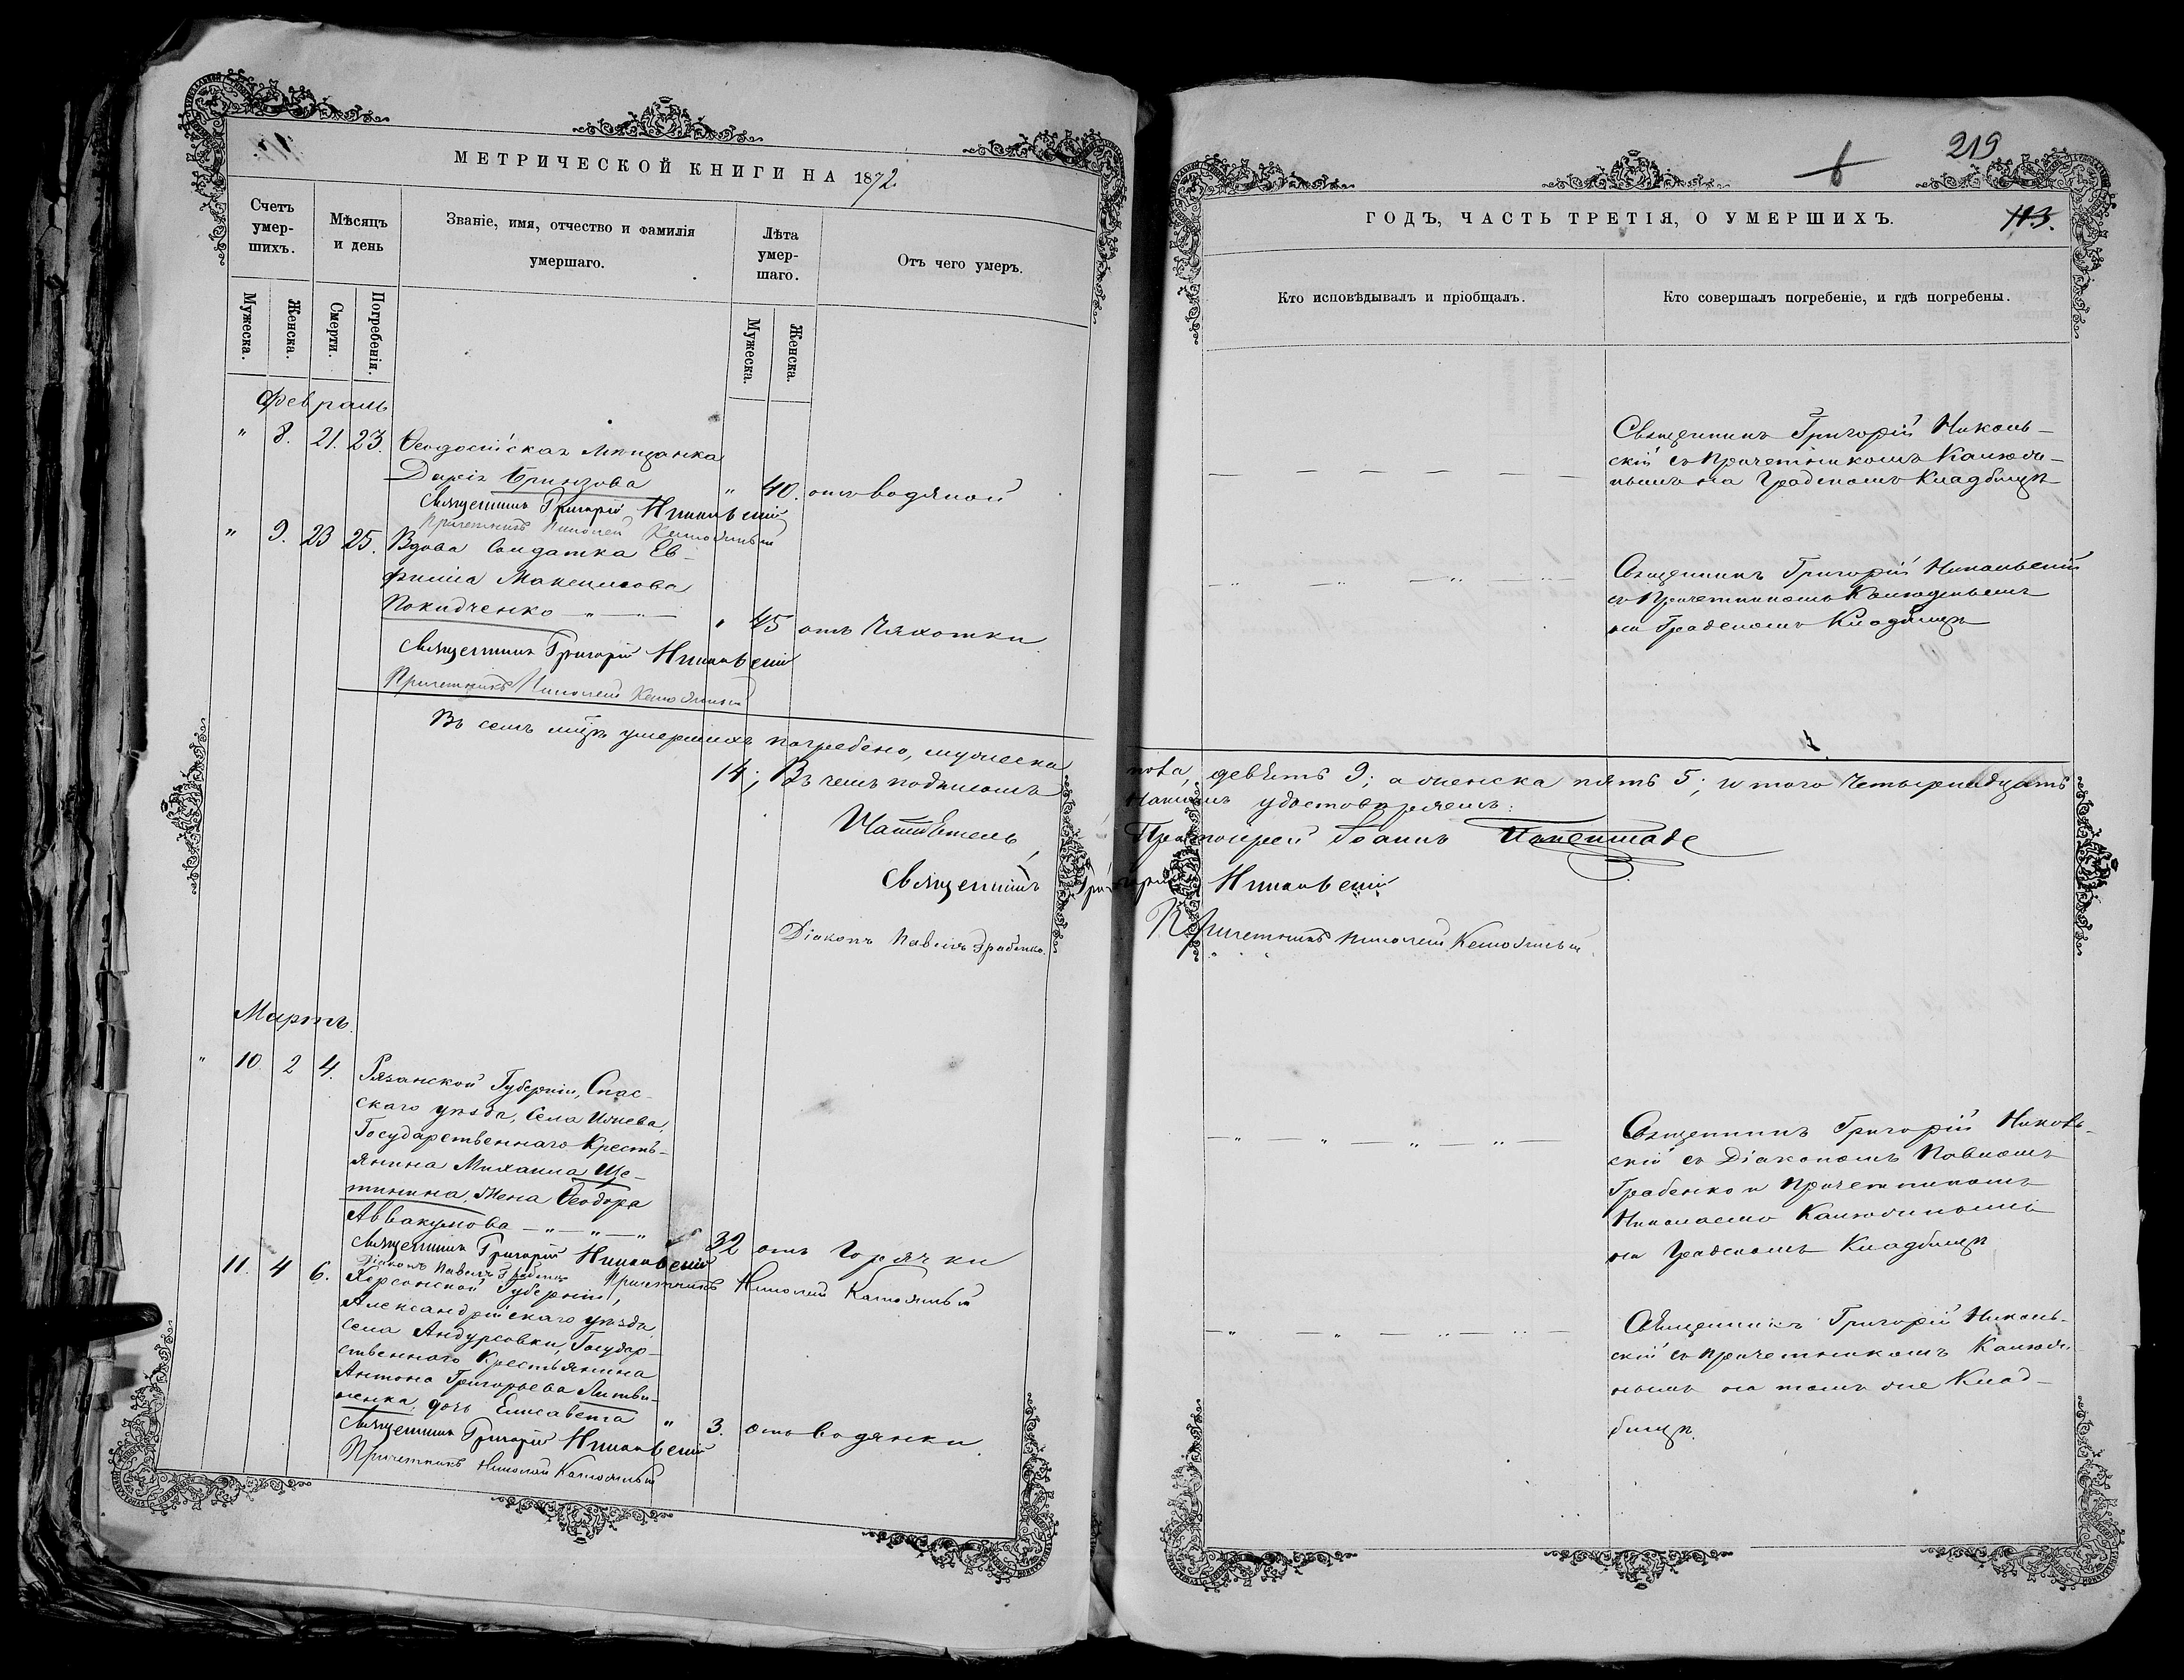 МЕТРИЧЕСКОЙ КНИГИ НА 1872
Счетъ умер-шихъ.
Мѣсяцъ и день
Званіе, имя, отчество и фамилія умершаго.
Лѣта умер-шаго.
Отъ чего умеръ.
Мужеска.
Женска.
Смерти.
Погребенія.
Мужеска.
Женска.
Февраль
" 8. 21. 23. Ѳеодосійская Мѣщанка
Дарія Бринзова " 40. отъ водяной
Священникъ Григорій Никольскій
Причетникъ Николай
" 9. 23 25. Вдова Солдатка Ев-
фимія Максимова
Покидченко — " — " 45 отъ Чахотки
Священникъ Григорій Никольскій
Причетникъ Николай
Въ семъ мцѣ умершихъ погребено, мужеска
14; Въ чемъ подписомъ
Священникъ
Діаконъ Павелъ Грабенко.
Мартъ.
" 10 2 4. Рязанской Губерніи, Спас-
скаго уѣзда, Села Ижева,
Государственнаго Кресть-
янина Михаила Ще-
тинина, Жена Ѳеодора
Аввакумова — " — " — " 32 отъ Горячки
Священникъ Григорій Никольскій
Діаконъ Павелъ Грабенко Причетникъ Николай
11. 4 6. Херсонской Губерніи,
Александрійскаго уѣзда,
села Андрусовки, Государ-
ственнаго Крестьянина
Антона Григорьева Литви-
ненка, дочь Елисавета " 3. отъ водянки.
Священникъ Григорій Никольскій
Причетникъ Николай
219
ГОДЪ, ЧАСТЬ ТРЕТІЯ, О УМЕРШИХЪ.
113.
Кто исповѣдывалъ и пріобщалъ.
Кто совершалъ погребеніе, и гдѣ погребены.
Священникъ Григорій Николь-
скій съ Причетникомъ Калюж-
нымъ на Градскомъ Кладбищѣ
Священникъ Григорій Никольскій
съ Причетникомъ Калюжнымъ
на Градскомъ Кладбищѣ
пола, девять 9; а женска пять 5; итого Четырнадцать
нашимъ удостовѣряемъ:
Протоіерей Іоаннъ
Григорій Никольскій
Причетникъ Николай
Священникъ Григорій Николь-
скій съ Діакономъ Павломъ
Грабенко и Причетникомъ
Николаемъ Калюжнымъ
на Градскомъ Кладбищѣ
Священникъ Григорій Николь-
скій съ Причетникомъ Калюж-
нымъ на томъ же Клад-
бищѣ.